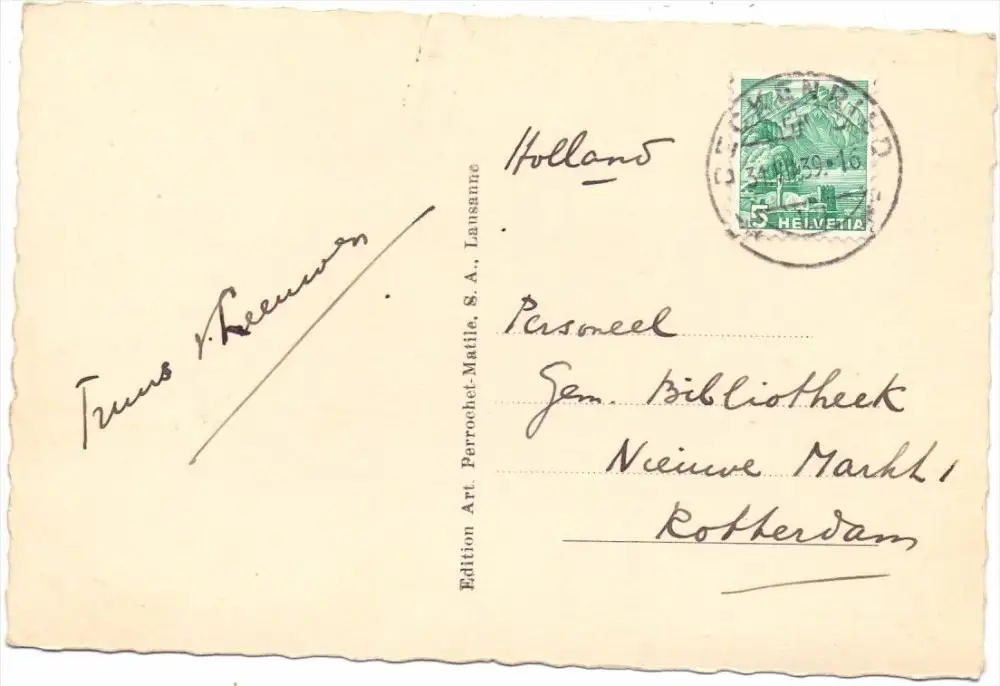 Truus v. Leeuwen
Edition Art. Perrochet-Matile, S. A., Lausanne
Holland
BECKENRIED
31.VII.39.-16
5 HELVETIA
Personeel
Gem. Bibliotheek
Nieuwe Markt 1
Rotterdam